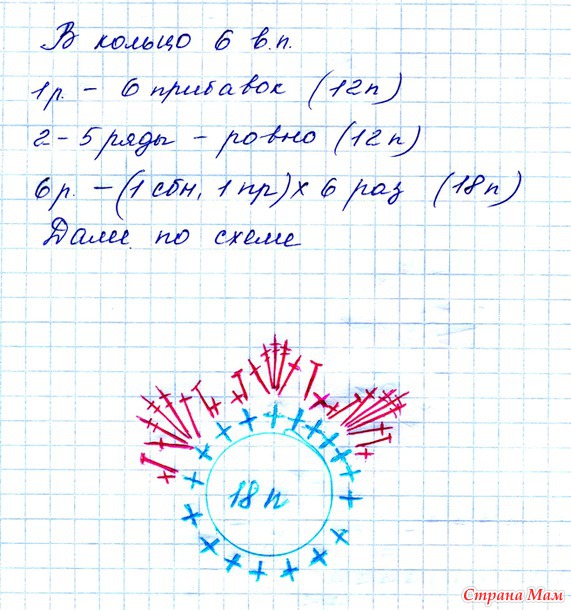 В кольцо 6 в.п.
1р. - 6 прибавок (12п)
2-5 ряды - ровно (12п)
6р. - (1 сбн, 1 пр) х 6 раз (18п)
Далее по схеме
18 п
Страна Мам